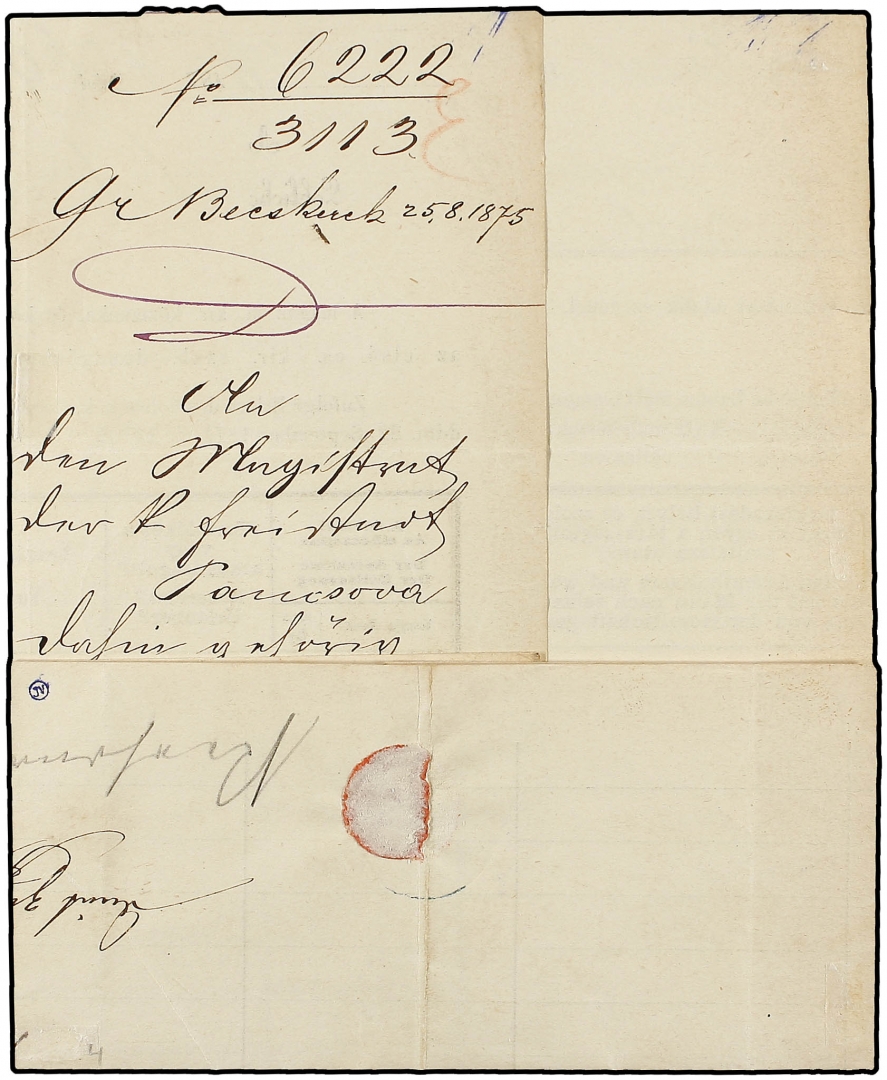 No 6222
3113
Gr Becskerek 25.8.1875
An
den Magistrat
der k Freistadt
Pancsova
dahin gehörig
JV
4